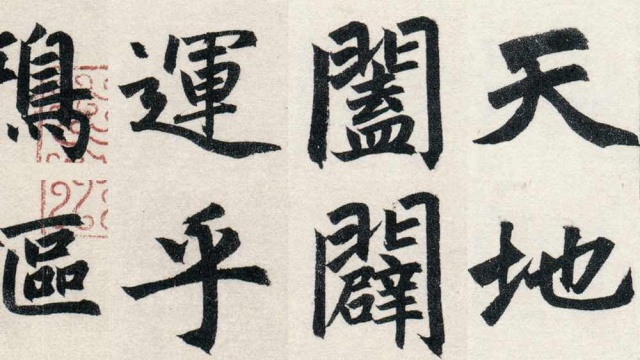 天地
闔闢
運乎
鴻區